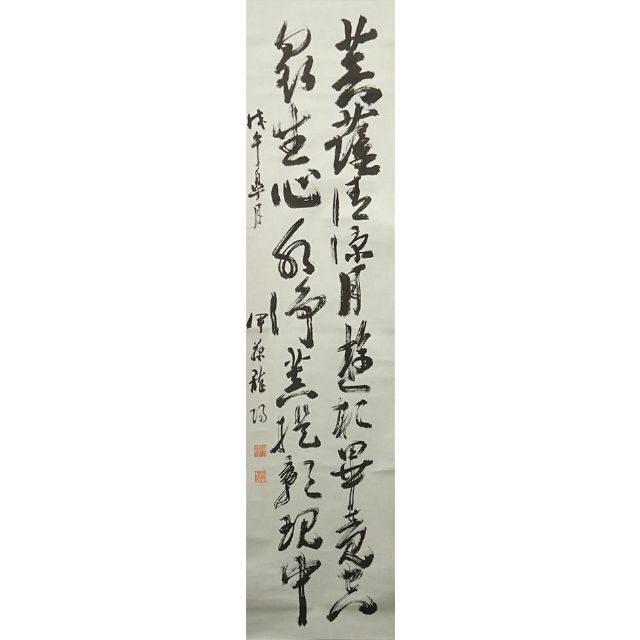 菩薩清涼月遊於畢竟空
衆生心水淨菩提影現中
戊午
月
伊藤龍